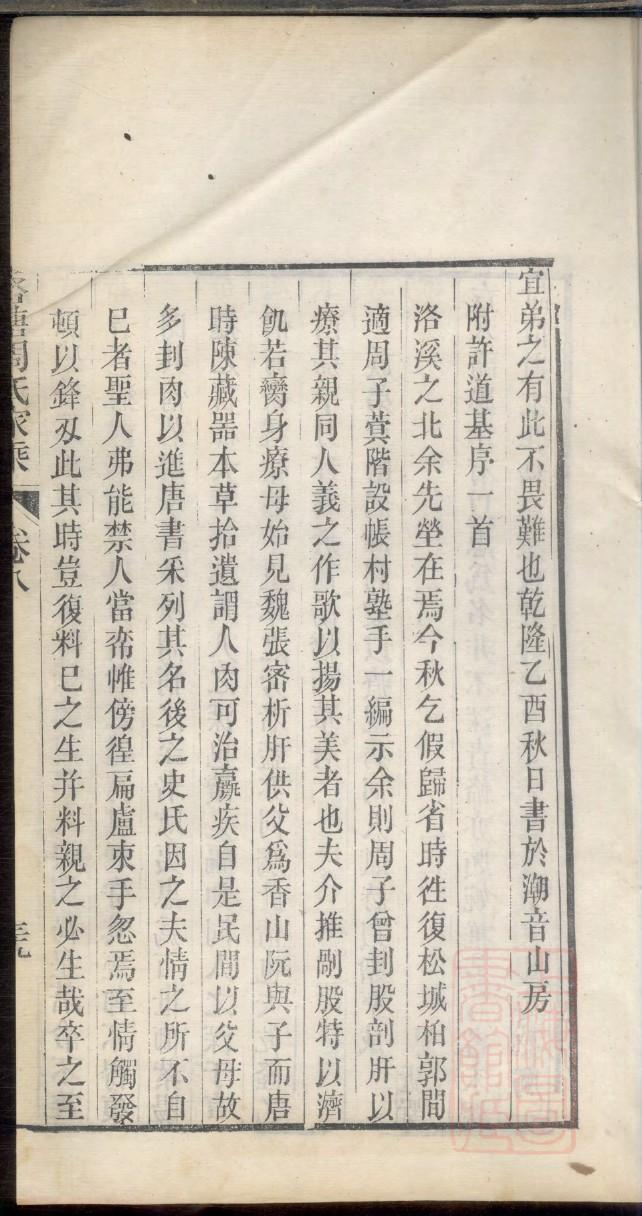 宜弟之有此不畏難也乾隆乙酉秋日書於潮音山房
附許道基序一首
洛溪之北余先塋在焉今秋乞假歸省時徃復松城柏郭間
適周子蓂階設帳村塾手一編示余則周子曾刲股剖肝以
療其親同人義之作歌以揚其美者也夫介推剮股特以濟
飢若臠身療母始見魏張密析肝供父爲香山阮與子而唐
時陳藏器本草拾遺謂人肉可治羸疾自是民間以父母故
多刲肉以進唐書采列其名後之史氏因之夫情之所不自
巳者聖人弗能禁人當帟帷傍徨扁盧束手忽焉至情觸發
頓以鋒刄此其時豈復料巳之生并料親之必生哉卒之至
洛塘周氏家乘
卷八
三九